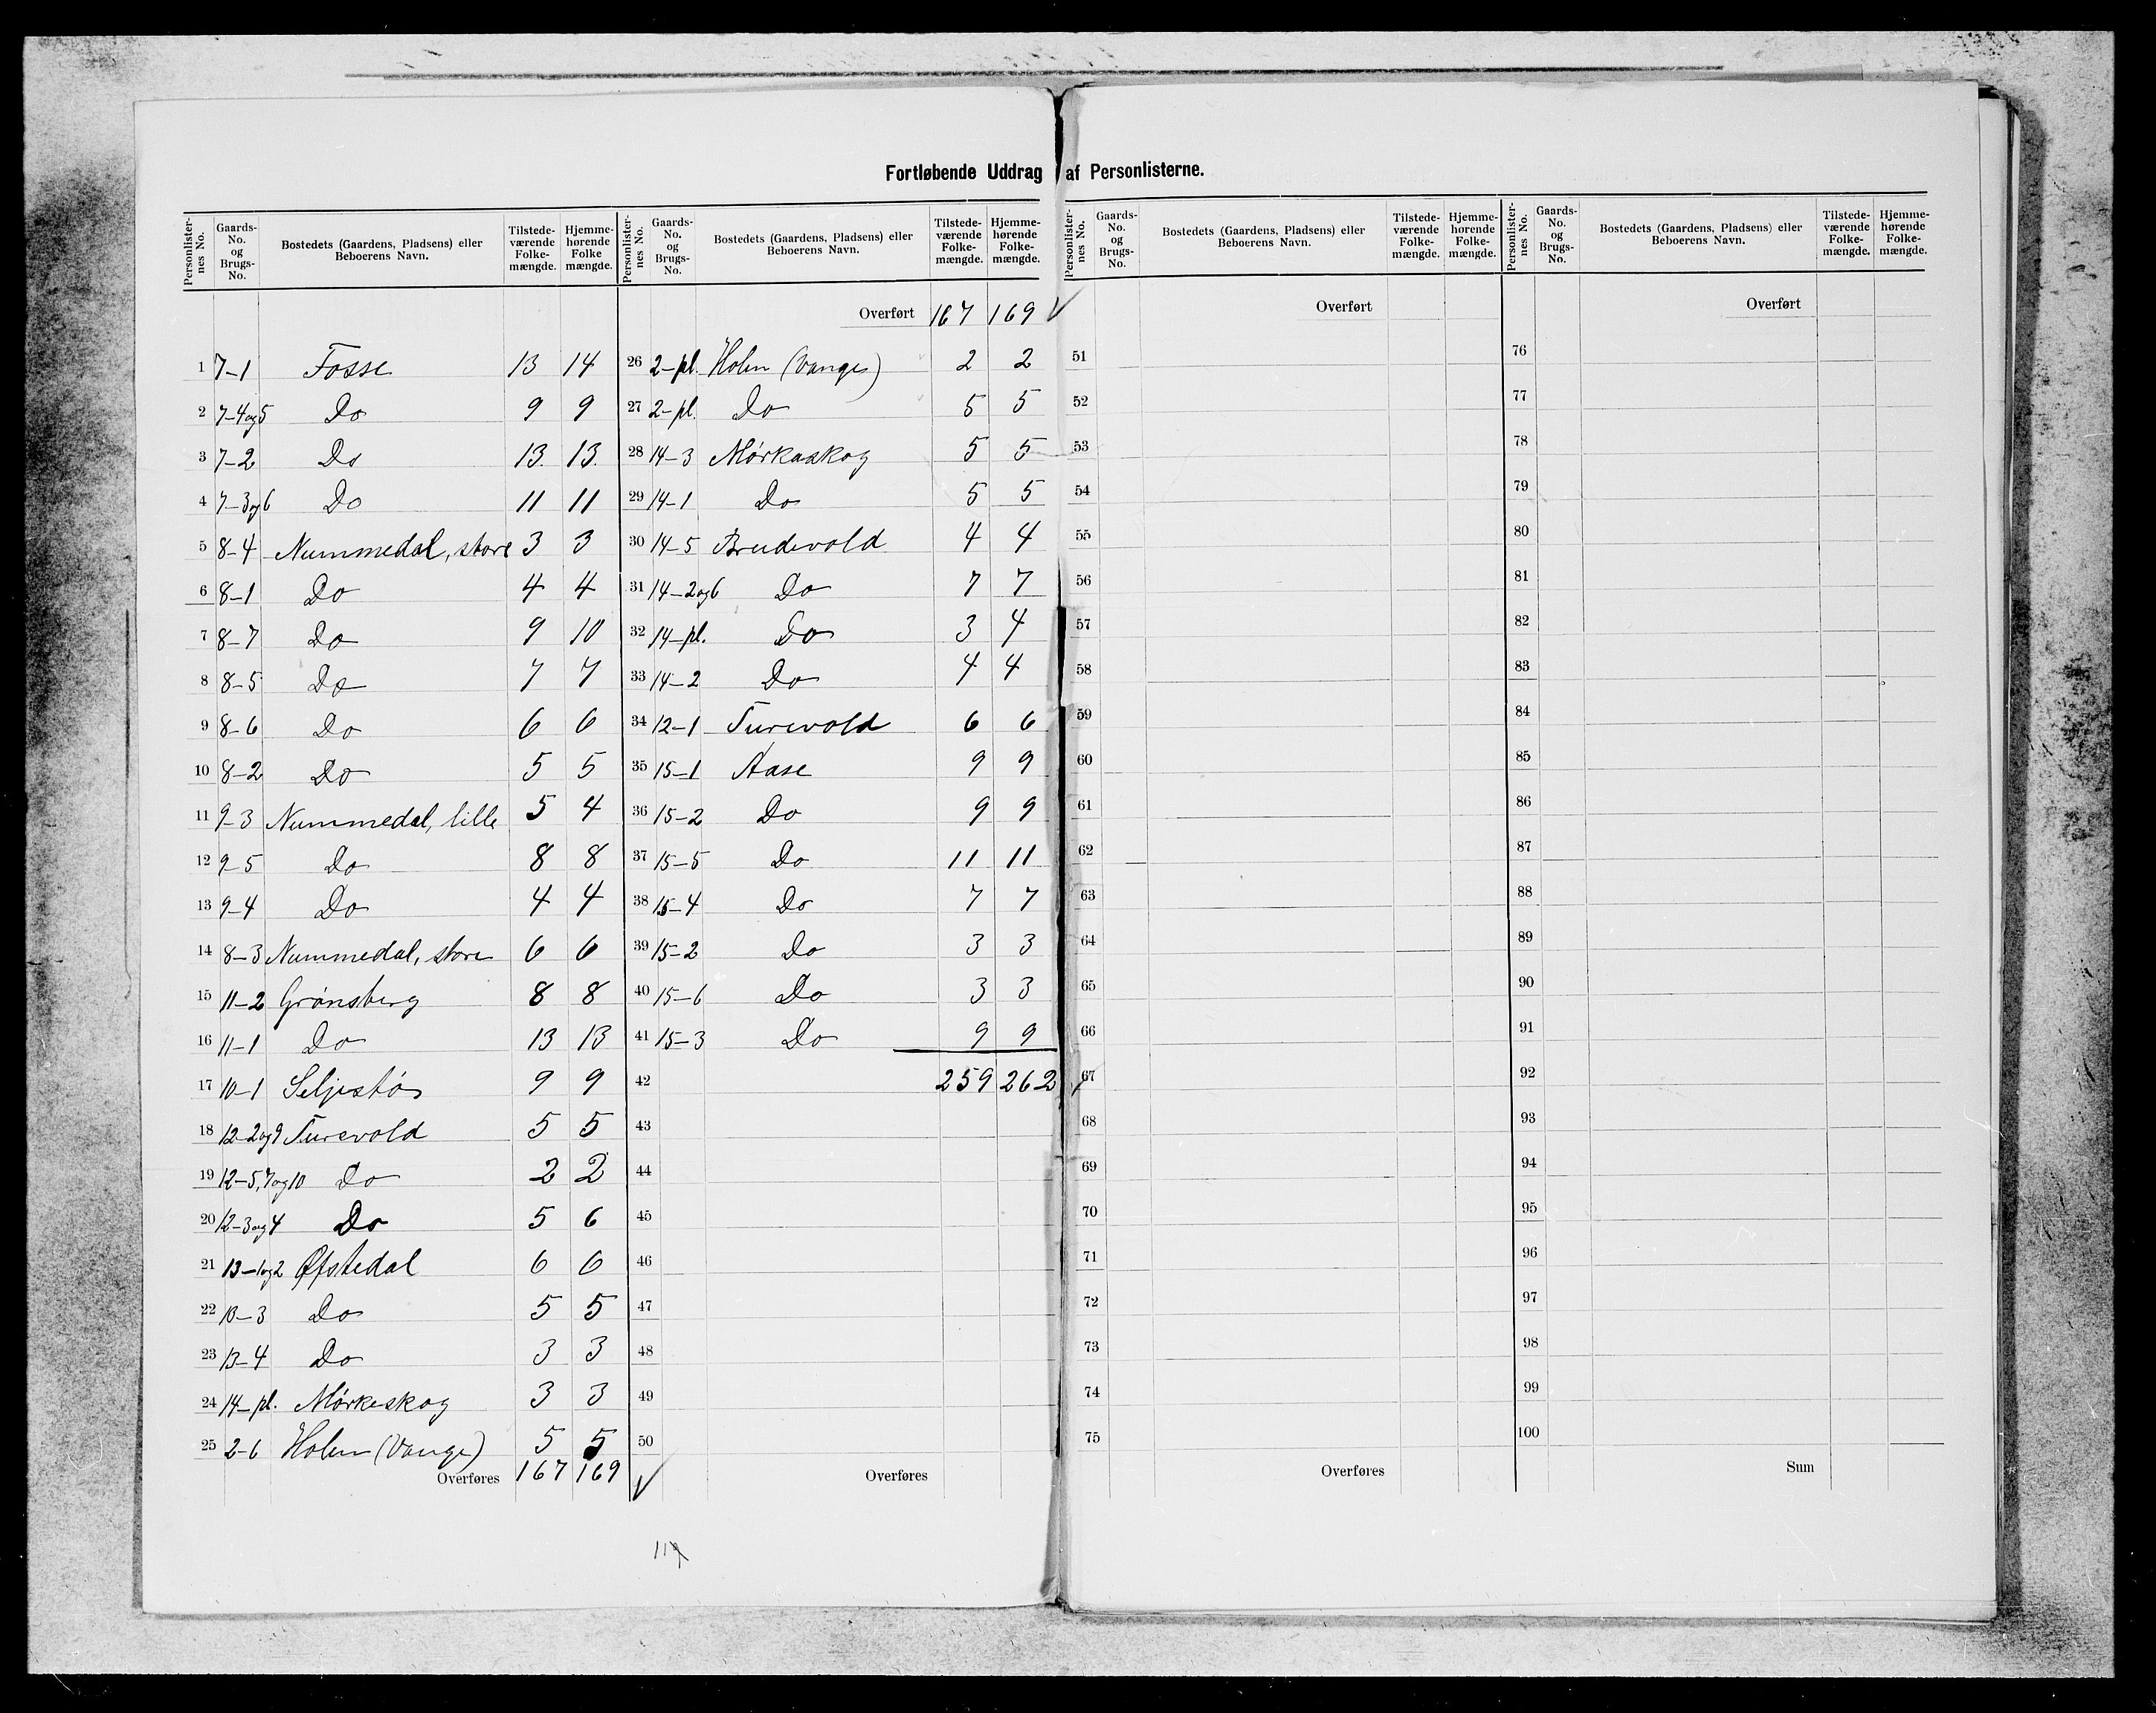 Fortløbende Uddrag af Personlisterne.
Personlisternes No. Gaards-No. og Brugs-No. Bostedets (Gaardens, Pladsens) eller Beboerens Navn. Tilstedeværende Folkemængde. Hjemmehørende Folkemængde.
1 7-1 Fosse 13 14
2 7-4 og 5 Do 9 9
3 7-2 Do 13. 13.
4 7-3 og 6 Do 11 11
5 8-4 Nummedal, store 3 3
6 8-1 Do 4 4
7 8-7 Do 9 10
8 8-5 Do 7 7
9 8-6 Do 6 6
10 8-2 Do 5 5
11 9-3 Nummedal, lille 5 4
12 9-5 Do 8 8
13 9-4 Do 4 4
14 8-3 Nummedal, store 6 6
15 11-2 Grønsberg 8 8
16 11-1 Do 13 13
17 10-1 Seljestø 9 9
18 12-2 og 9 Turevold 5 5
19 12-5, 7 og 10 Do 2 2
20 12-3 og 4 Do 5 6
21 13-1 og 2 Øfstedal 6 6
22 13-3 Do 5 5
23 13-4 Do 3 3
24 14-pl. Mørkeskog 3 3
25 2-6 Holm (Vange) 5 5
Overføres 167 169
Personlisternes No. Gaards-No. og Brugs-No. Bostedets (Gaardens, Pladsens) eller Beboerens Navn. Tilstedeværende Folkemængde. Hjemmehørende Folkemængde.
Overført 167 169
26 2-pl. Holm (Vange) 2 2
27 2-pl. Do 5 5
28 14-3 Mørkaskog 5 5
29 14-1 Do 5 5
30 14-5 Brudevold 4 4
31 14-2 og 6 Do 7 7
32 14-pl. Do 3 4
33 14-2 Do 4 4
34 12-1 Turevold 6 6
35 15-1 Aase 9 9
36 15-2 Do 9 9
37 15-5 Do 11 11
38 15-4 Do 7 7
39 15-2 Do 3 3
40 15-6 Do 3 3
41 15-3 Do 9 9
42 259 262
43
44
45
46
47
48
49
50
Overføres
Personlisternes No. Gaards-No. og Brugs-No. Bostedets (Gaardens, Pladsens) eller Beboerens Navn. Tilstedeværende Folkemængde. Hjemmehørende Folkemængde.
Overført
51
52
53
54
55
56
57
58
59
60
61
62
63
64
65
66
67
68
69
70
71
72
73
74
75
Overføres
Personlisternes No. Gaards-No. og Brugs-No. Bostedets (Gaardens, Pladsens) eller Beboerens Navn. Tilstedeværende Folkemængde. Hjemmehørende Folkemængde.
Overført
76
77
78
79
80
81
82
83
84
85
86
87
88
89
90
91
92
93
94
95
96
97
98
99
100
Sum